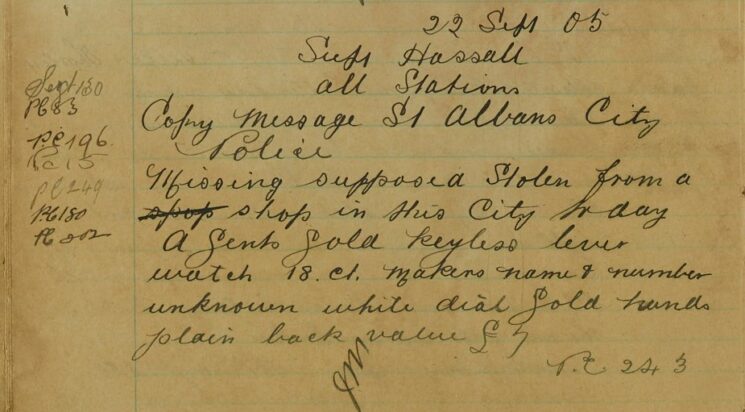 22 Sept 05
Supt Hassall
all Stations
Copy Message St Albans City
Police
Missing supposed Stolen from a
spop shop in this City to day
A Gents Gold keyless lever
watch 18. ct. Makers name & number
unknown white dial Gold hands
plain back value £7
P.C 243
Sergt 130
PC 83
P.C 196.
PC 15
PC 249
PC 180
PC 202